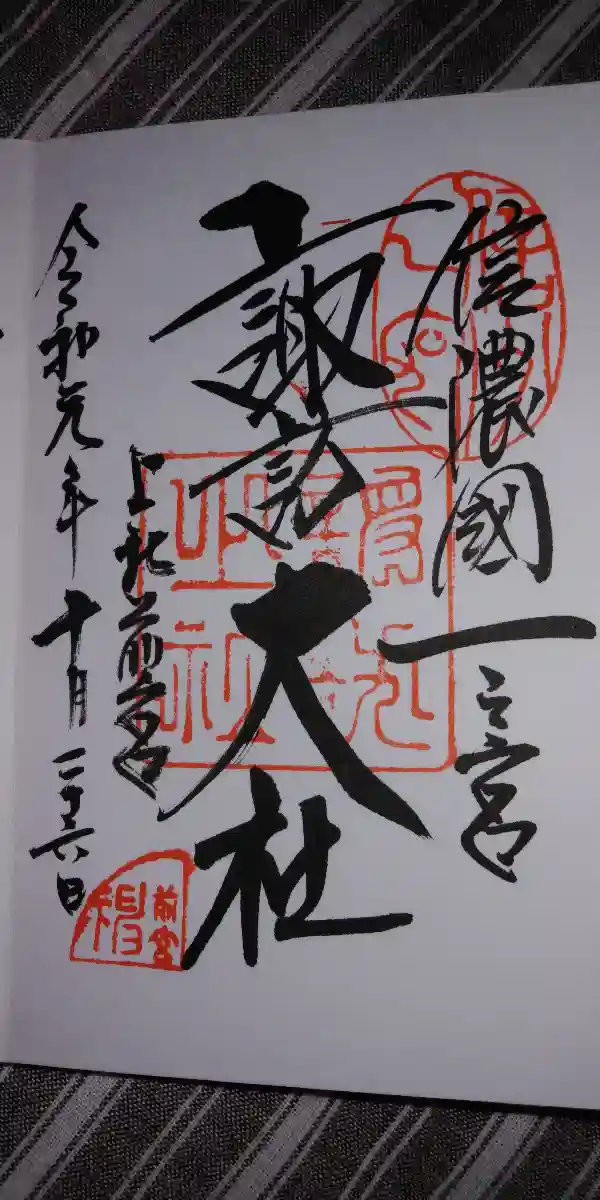 信濃國一之宮
諏訪大社
上社前宮
令和元年十月二十六日
前宮